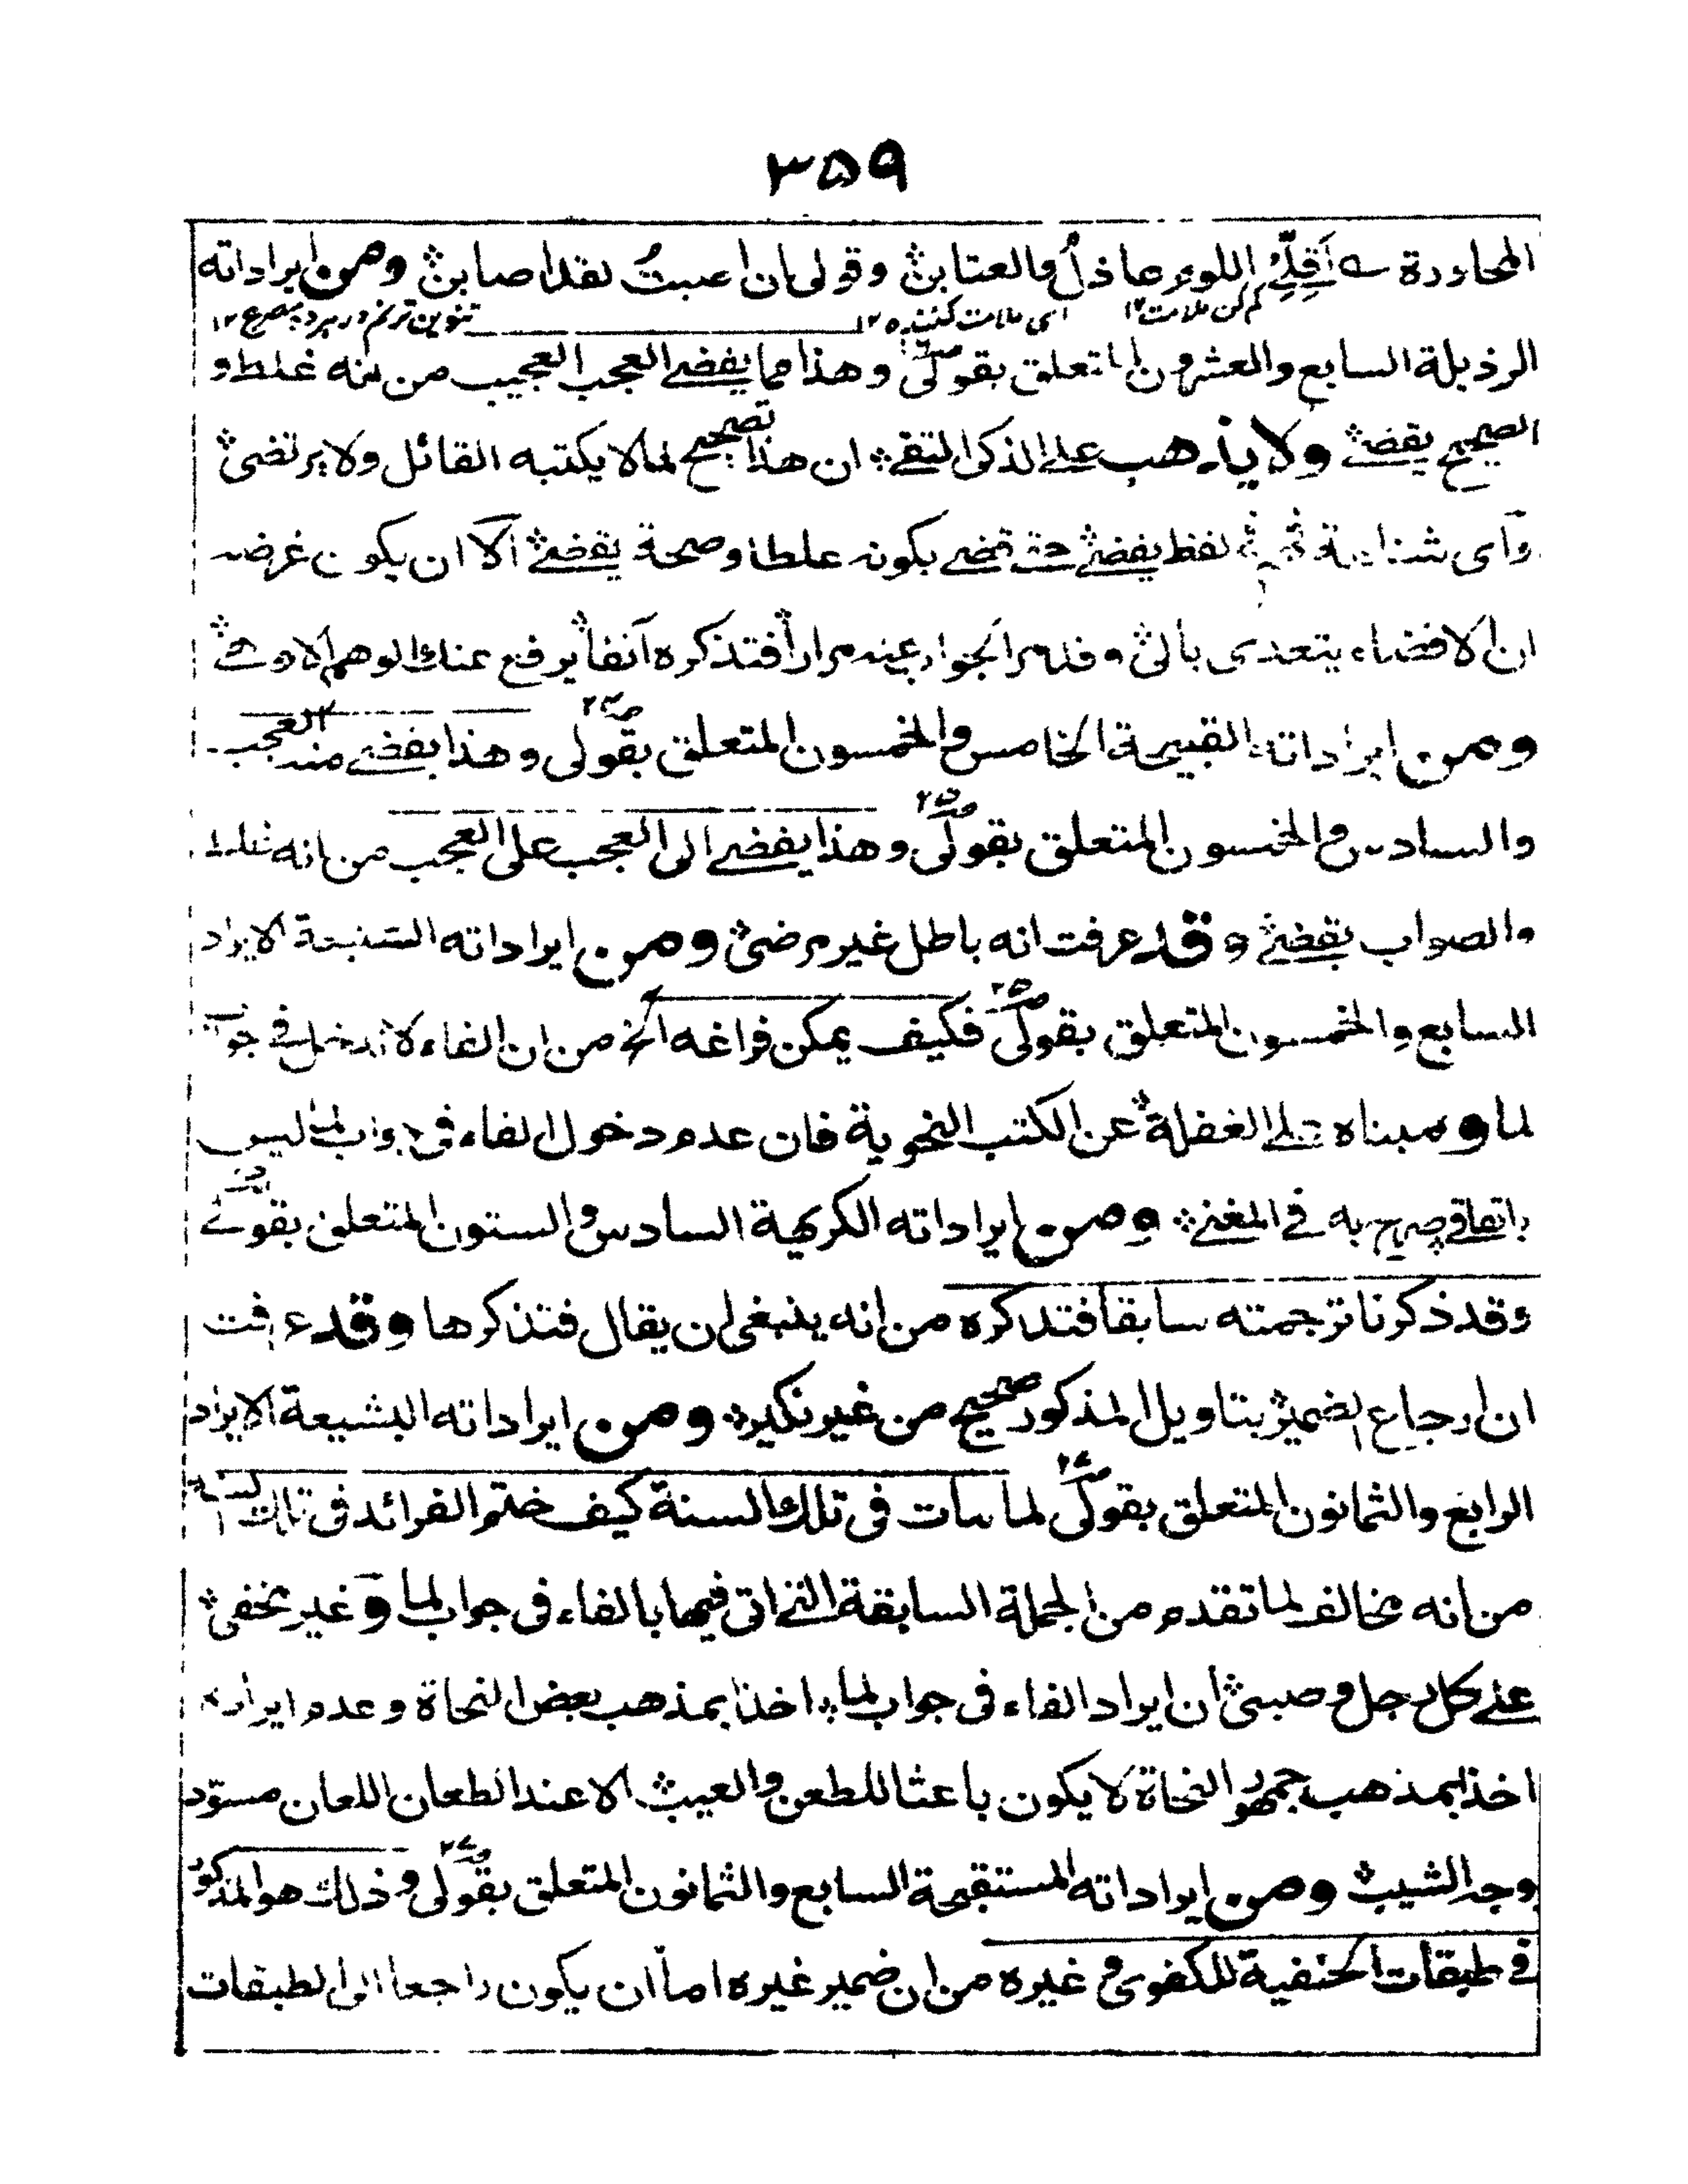 ۳۵۹
المحاورة ے أَقِلِّي اللوم عاذلُ والعتابنْ وقولی ان اصبتُ لقد اصابنْ ومن ایراداته
کم کن ملامت ۱۲ ای ملامت کننده ۱۲ تنوین ترنم در هر دو مصرع ۱۲
الرذیلة السابع والعشرون المتعلق بقولی وهذا مما یفضے العجب العجیب من انه غلط و
الصحیح یقضے ولا یذهب علے الذکی التقے ان هذا تصحیح لما لا یکتبه القائل ولا یرتضی
وأی لفظ یفضے حتی بکونه غلطا وصحة یقضے الا ان یکون غرضه
ان الافضاء یتعدی بالی وقد مر الجواب عنه مرارا فتذکره آنفا یرفع عنك الوهم
ومن ایراداته القبیحة الخامس والخمسون المتعلق بقولی وهذا یفضے منه العجب
والسادس والخمسون المتعلق بقولی وهذا یفضے الی العجب علی العجب من انه غلط
والصواب یقضے وقد عرفت انه باطل غیر مرضی ومن ایراداته الشنیعة الایراد
السابع والخمسون المتعلق بقولی فکیف یمکن فراغه الخ من ان الفاء لا تدخل فے جواب
لما ومبناه علے الغفلة عن الکتب النحویة فان عدم دخول الفاء فی جواب لما لیس
باتفاقے صرح به فے المغنے ومن ایراداته الکریهة السادس والستون المتعلق بقولے
وقد ذکرنا ترجمته سابقا فتذکره من انه ینبغی ان یقال فتذکرها وقد عرفت
ان ارجاع الضمیر بتاویل المذکور صحیح من غیر نکیر ومن ایراداته البشیعة الایراد
الرابع والثمانون المتعلق بقولی لما مات فی تلك السنة کیف ختم الفرائد فی تلك السنة
من انه مخالف لما تقدم من الجملة السابقة التی اتی فیها بالفاء فی جواب لما وغیر مخفی
علے کل رجل وصبی ان ایراد الفاء فی جواب لما اخذا بمذهب بعض النحاة وعدم ایراده
اخذا بمذهب جمهور النحاة لا یکون باعثا للطعن والعیب الا عند الطعان اللعان مسوّد
وجه الشیب ومن ایراداته المستقبحة السابع والثمانون المتعلق بقولی وذلك هو المذکور
فے طبقات الحنفیة للکفوی وغیره من ان ضمیر غیره اما ان یکون راجعا الی الطبقات